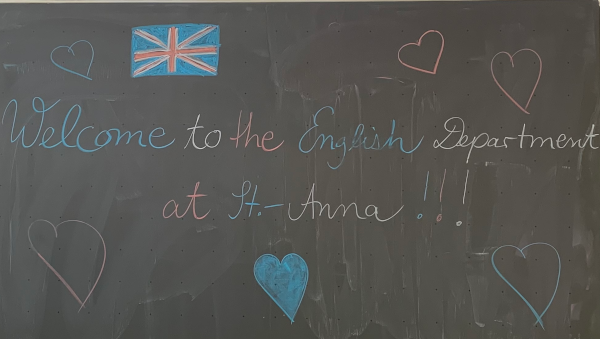 Welcome to the English Department
at St.-Anna !!!